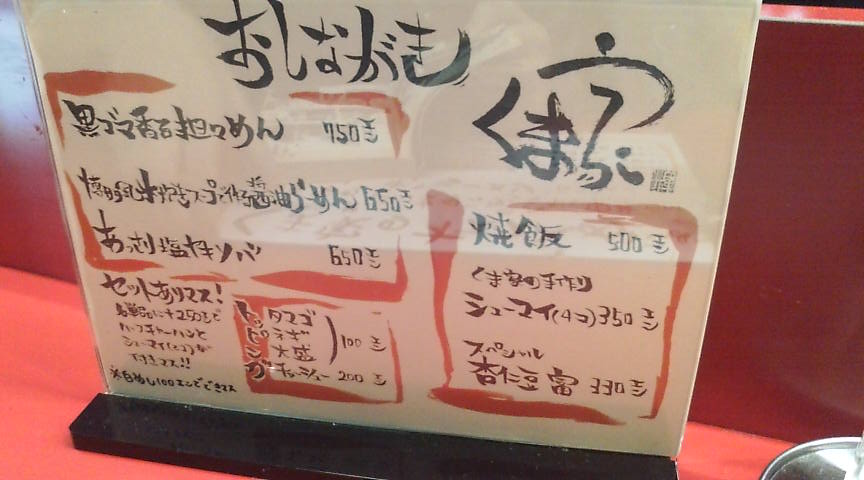 おしながき
黒ゴマ香る担々めん 750エン
博多風水炊きスープの醤油らーめん 650エン
あっさり塩ヤキソバ 650エン
セットありマス!
各単品に+250エンで
ハーフチャーハンと
シューマイ(2コ)が
付きマス!!
※白めし100エンでできマス
トッピング
タマゴ
ネギ
大盛
100エン
チャーシュー 200エン
焼飯 500エン
くま家の手作り
シューマイ(4コ) 350エン
スペシャル
杏仁豆富 330エン